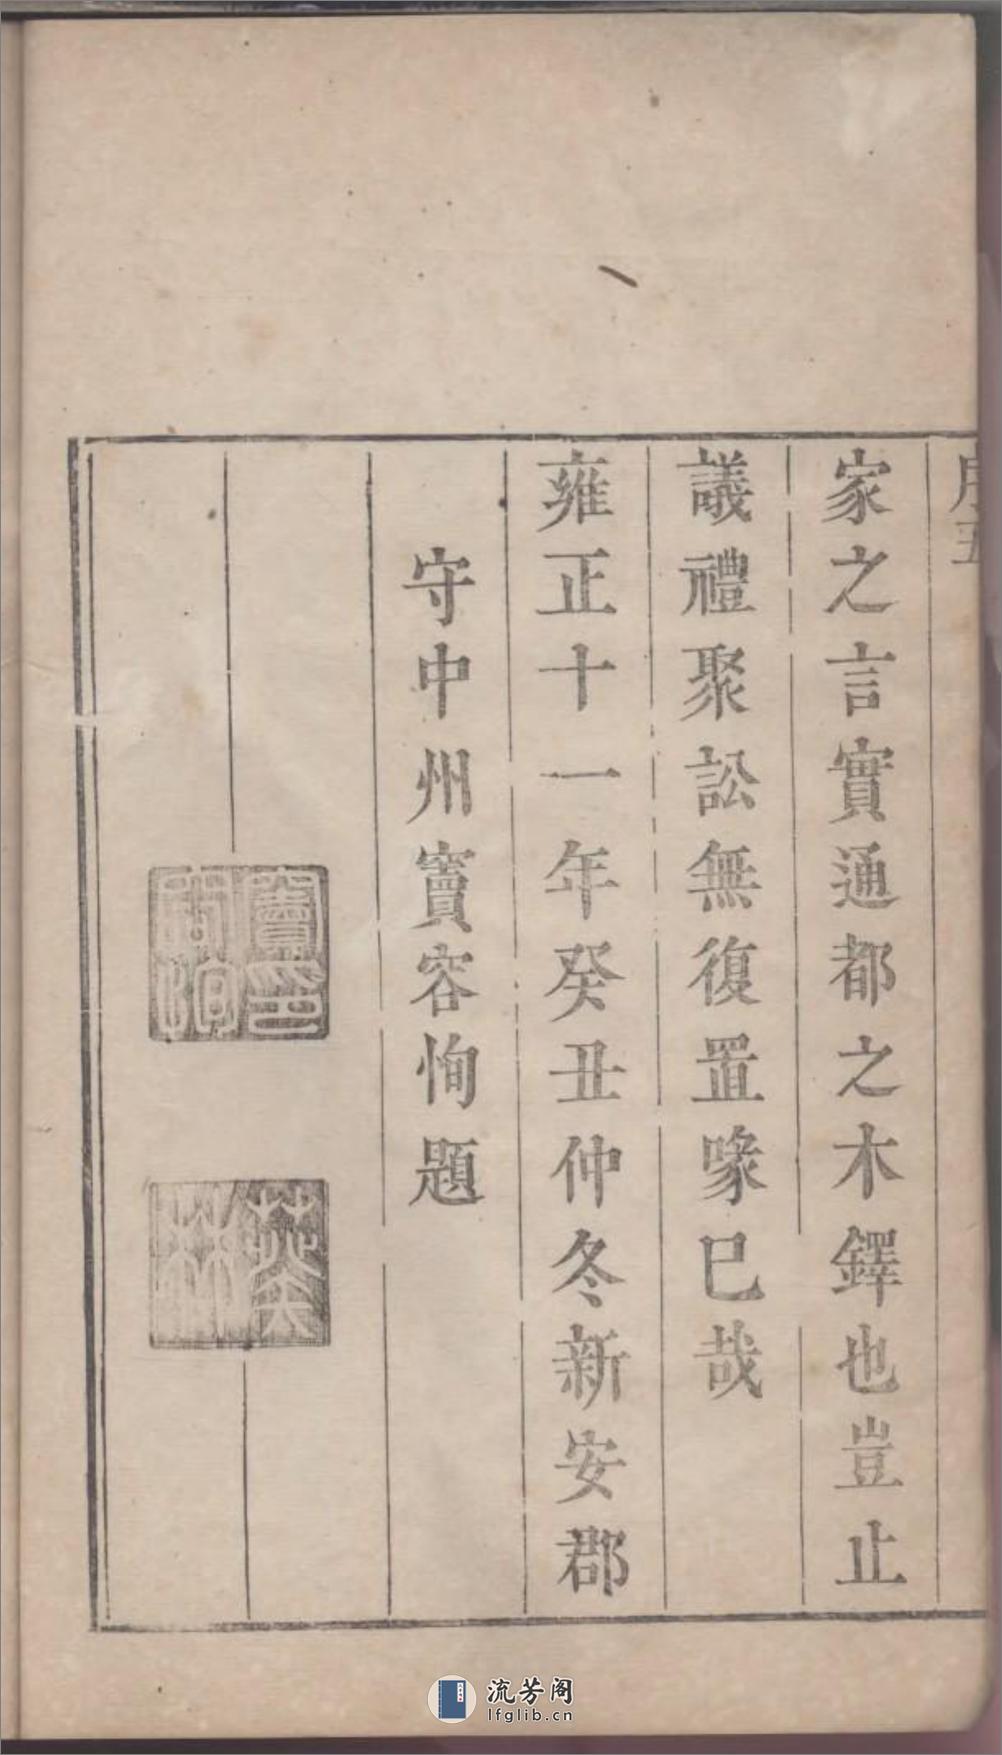 序五
家之言實通都之木鐸也豈止
議禮聚訟無復置喙已哉
雍正十一年癸丑仲冬新安郡
守中州竇容恂題
竇容恂印
英林
流芳阁
lfglib.cn